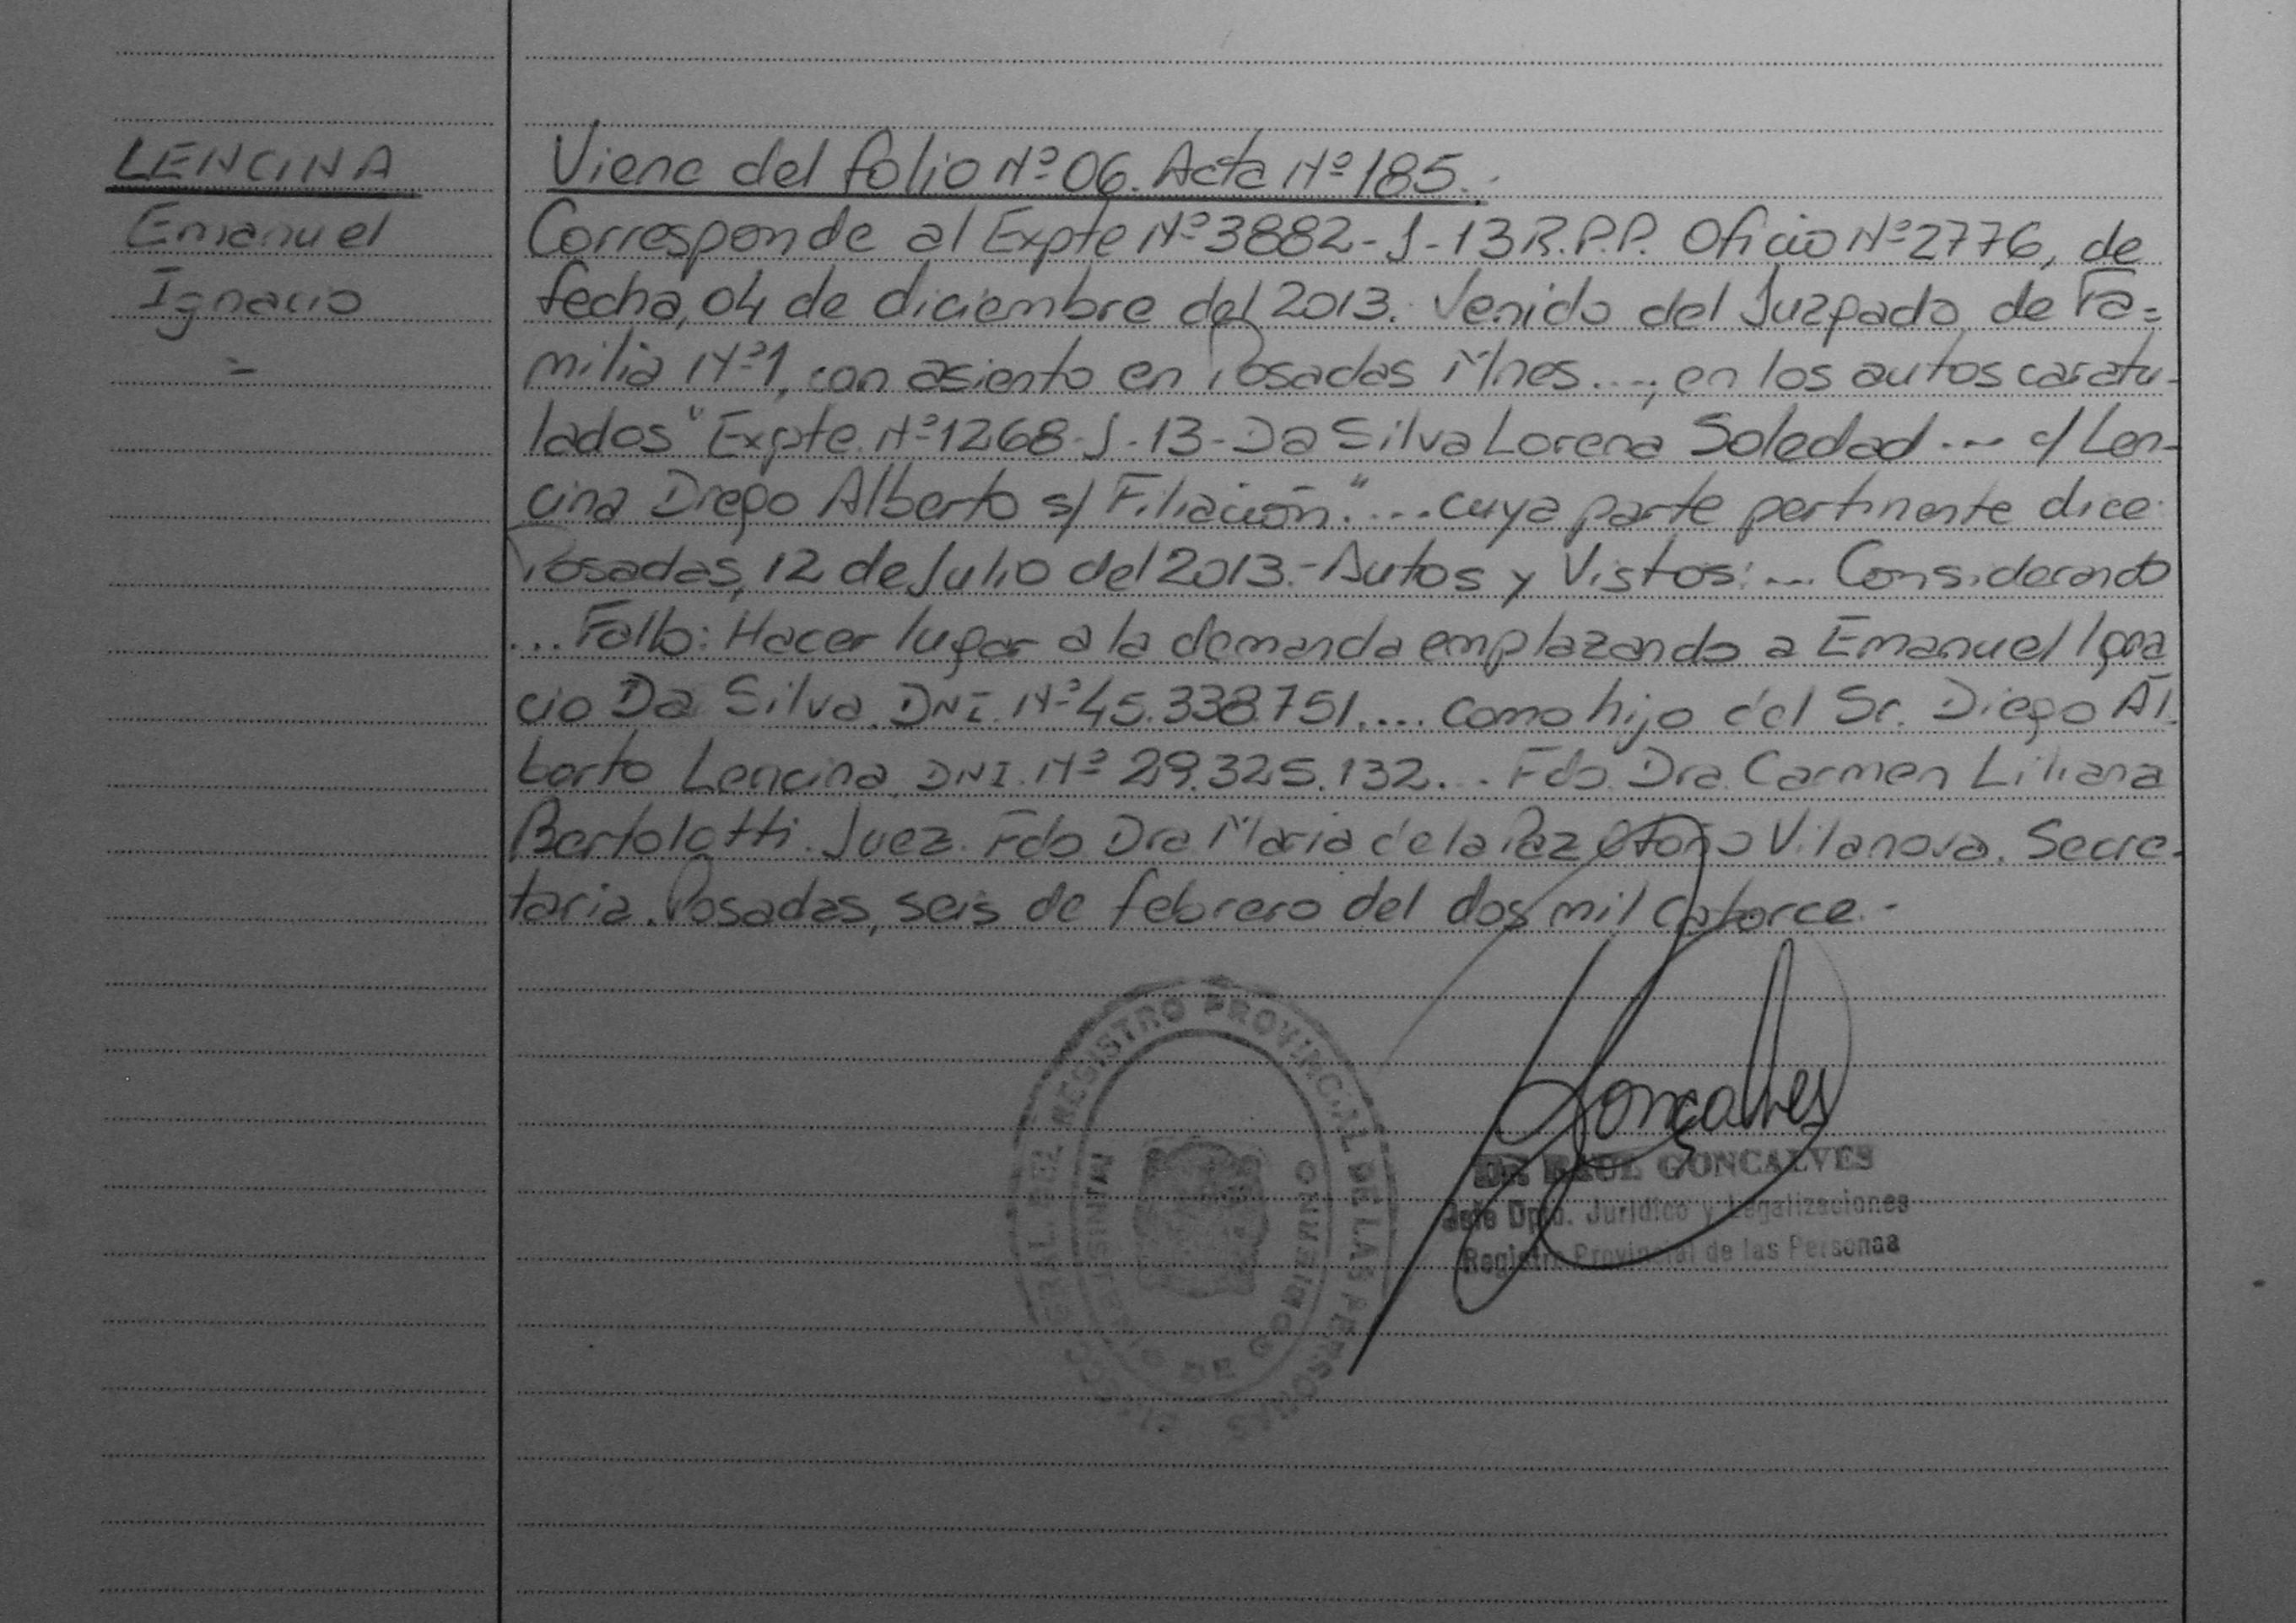 LENCINA
Emanuel
Ignacio
=
Viene del folio Nº 06. Acta Nº 185.-
Corresponde al Expte Nº 3882-J-13 R.P.P. Oficio Nº 2776, de
fecha, 04 de diciembre del 2013. Venido del Juzgado de Fa=
milia Nº 1, con asiento en Posadas Mnes...., en los autos caratu-
lados "Expte. Nº 1268-J-13-Da Silva Lorena Soledad ... c/ Len-
cina Diego Alberto s/ Filiación." ... cuya parte pertinente dice:
Posadas, 12 de Julio del 2013.- Autos y Vistos: ... Considerando
... Fallo: Hacer lugar a la demanda emplazando a Emanuel Igna
cio Da Silva. DNI. Nº 45.338.751.... como hijo del Sr. Diego Al-
berto Lencina, DNI. Nº 29.325.132... Fdo. Dra. Carmen Liliana
Bertolotti. Juez. Fdo. Dra Maria de la Paz Otaño Vilanova. Secre-
taria. Posadas, seis de febrero del dos mil catorce.-
Goncalves
Dr. RAUL GONCALVES
Jefe Dpto. Juridico y Legalizaciones
Registro Provincial de las Personas
REGISTRO PROVINCIAL DE LAS PERSONAS
MINISTERIO DE GOBIERNO